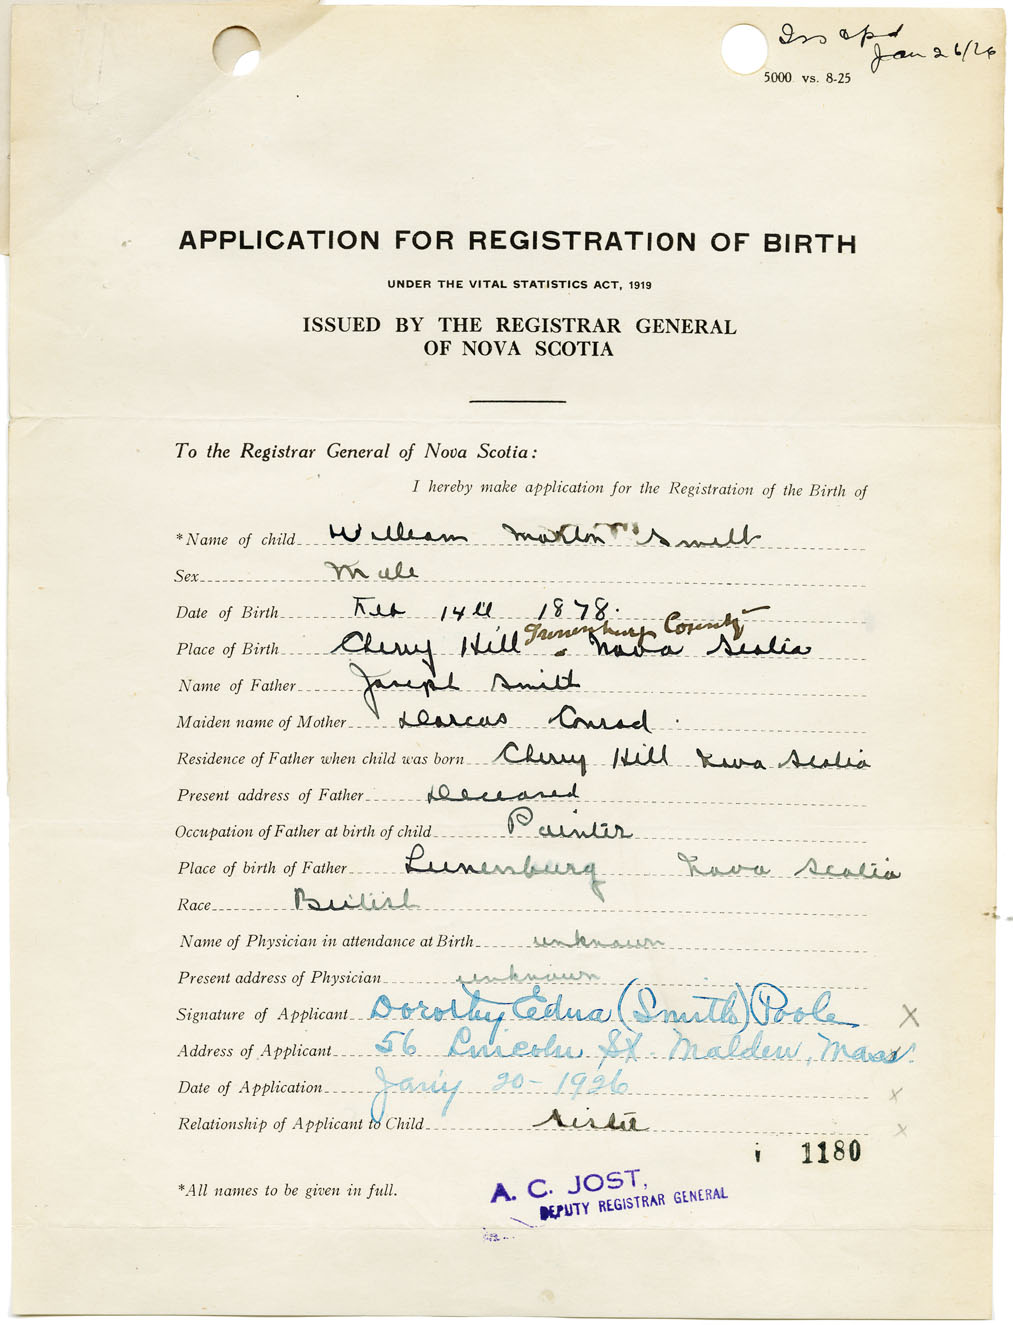 Iss apd
Jan 26/26
5000. vs. 8-25
APPLICATION FOR REGISTRATION OF BIRTH
UNDER THE VITAL STATISTICS ACT, 1919
ISSUED BY THE REGISTRAR GENERAL
OF NOVA SCOTIA
To the Registrar General of Nova Scotia:
I hereby make application for the Registration of the Birth of
*Name of child William Maxton Smith
Sex Male
Date of Birth Feb 14th 1878.
Lunenburg County
Place of Birth Cherry Hill Nova Scotia
Name of Father Joseph Smith
Maiden name of Mother Darcus Conrad.
Residence of Father when child was born Cherry Hill Nova Scotia
Present address of Father Deceased
Occupation of Father at birth of child Painter
Place of birth of Father Lunenburg Nova Scotia
Race British
Name of Physician in attendance at Birth unknown
Present address of Physician unknown
Signature of Applicant Dorothy Edna (Smith) Poole X
Address of Applicant 56 Lincoln St. Malden, Mass.
Date of Application Jan'y 20 - 1926 x
Relationship of Applicant to Child Sister x
1180
*All names to be given in full.
A. C. JOST,
DEPUTY REGISTRAR GENERAL